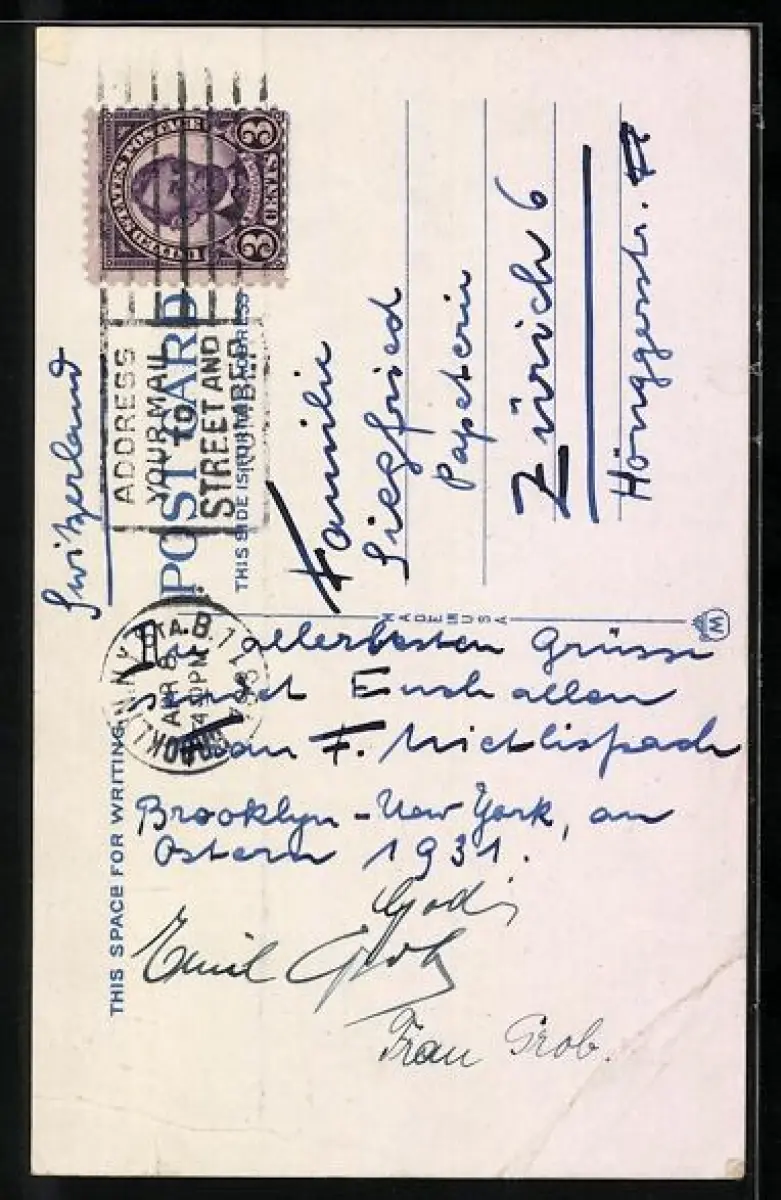 UNITED STATES POSTAGE
3 CENTS 3
ADDRESS
YOUR MAIL
TO
STREET AND
NUMBER
BROOKLYN, N.Y. STA. B. 1
APR 6
4 PM
1931
POST CARD
THIS SIDE IS FOR ADDRESS
Switzerland
Familie
Siegfried
Papeterie
Zürich 6
Hönggerstr.
MADE IN USA
W
THIS SPACE FOR WRITING
allerbesten Grüsse
sendet Euch allen
F.
Brooklyn - New York, an
Ostern 1931.
Godi
Emil Grob
Frau Grob.